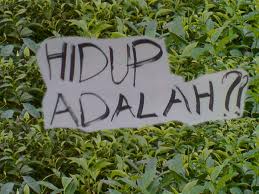 HIDUP
ADALAH?!